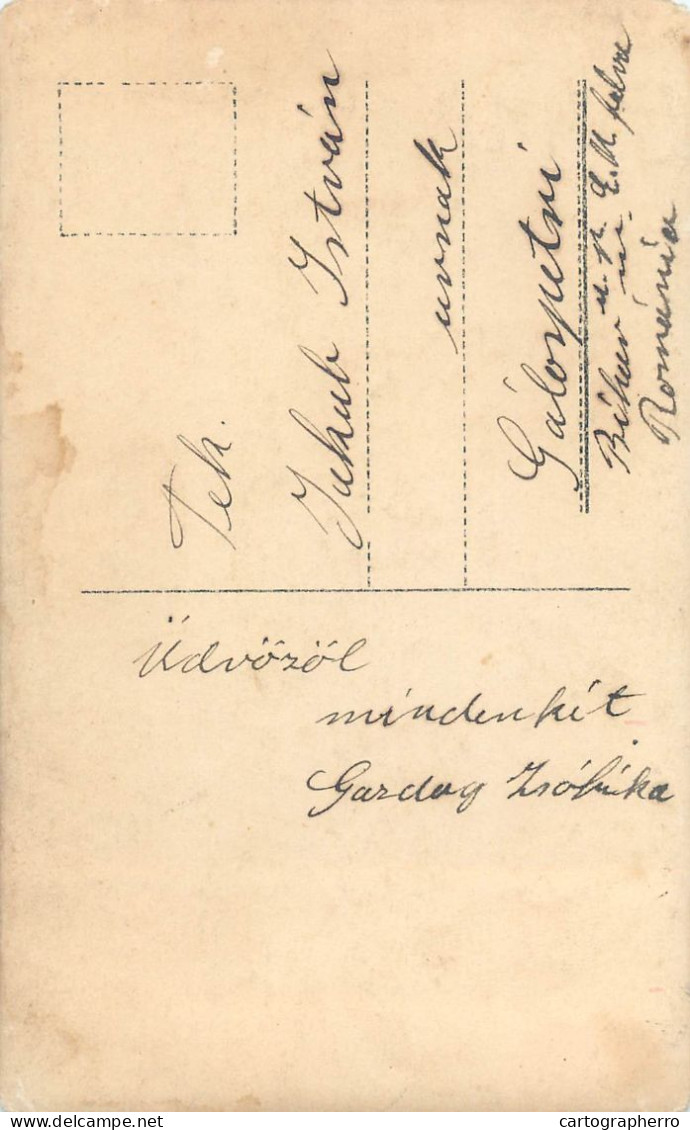 Tek.
Jakab István
urnak
Gálospetri
Bihar m. u. p. É. M. falva
Románia
Üdvözöl
mindenkit
Gazdag Zsófika
cartographerro